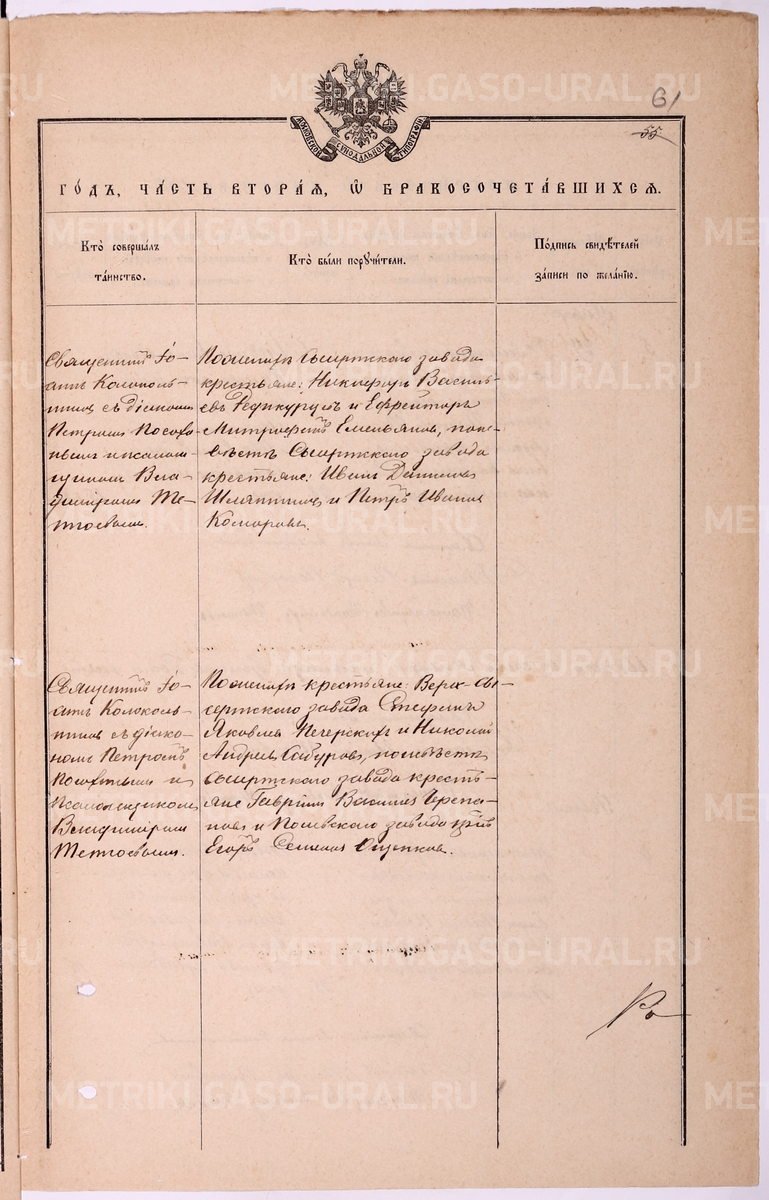 61
55
МОСКОВСКОЙ СѴНОДАЛЬНОЙ ТИПОГРАФІИ
ГО́ДЪ, ЧА́СТЬ ВТОРА́Я, Ѿ БРАКОСОЧЕТА́ВШИХСѦ.
Кто̀ соверша́лъ
та́инство.
Кто̀ бы́ли порꙋчи́тели.
По́дпись свидѣ́телей
за́писи по жела́нїю.
Священникъ Іо-
аннъ Колоколь-
никовъ съ діакономъ
Петромъ
и псалом-
щикомъ Вла-
димиромъ
По женихѣ Сысертскаго завода
крестьяне: Никифоръ Василь-
евъ и Ефрейторъ
Митрофанъ Емельяновъ, по не-
вѣстѣ Сысертскаго завода
крестьяне: Иванъ Даниловъ
и Петръ Ивановъ
Комаровъ.
Священникъ Іо-
аннъ Колоколь-
никовъ съ діако-
номъ Петромъ
и
Псаломщикомъ
Владимиромъ
По женихѣ крестьяне: Верх-Сы-
сертскаго завода Стефанъ
Яковлевъ Печерскихъ и Николай
Андреевъ Сабуровъ, по невѣстѣ
Сысертскаго завода кресть-
яне Гавріилъ Васильевъ Черепа-
новъ и завода
Егоръ Семеновъ
METRIKI.GASO-URAL.RU